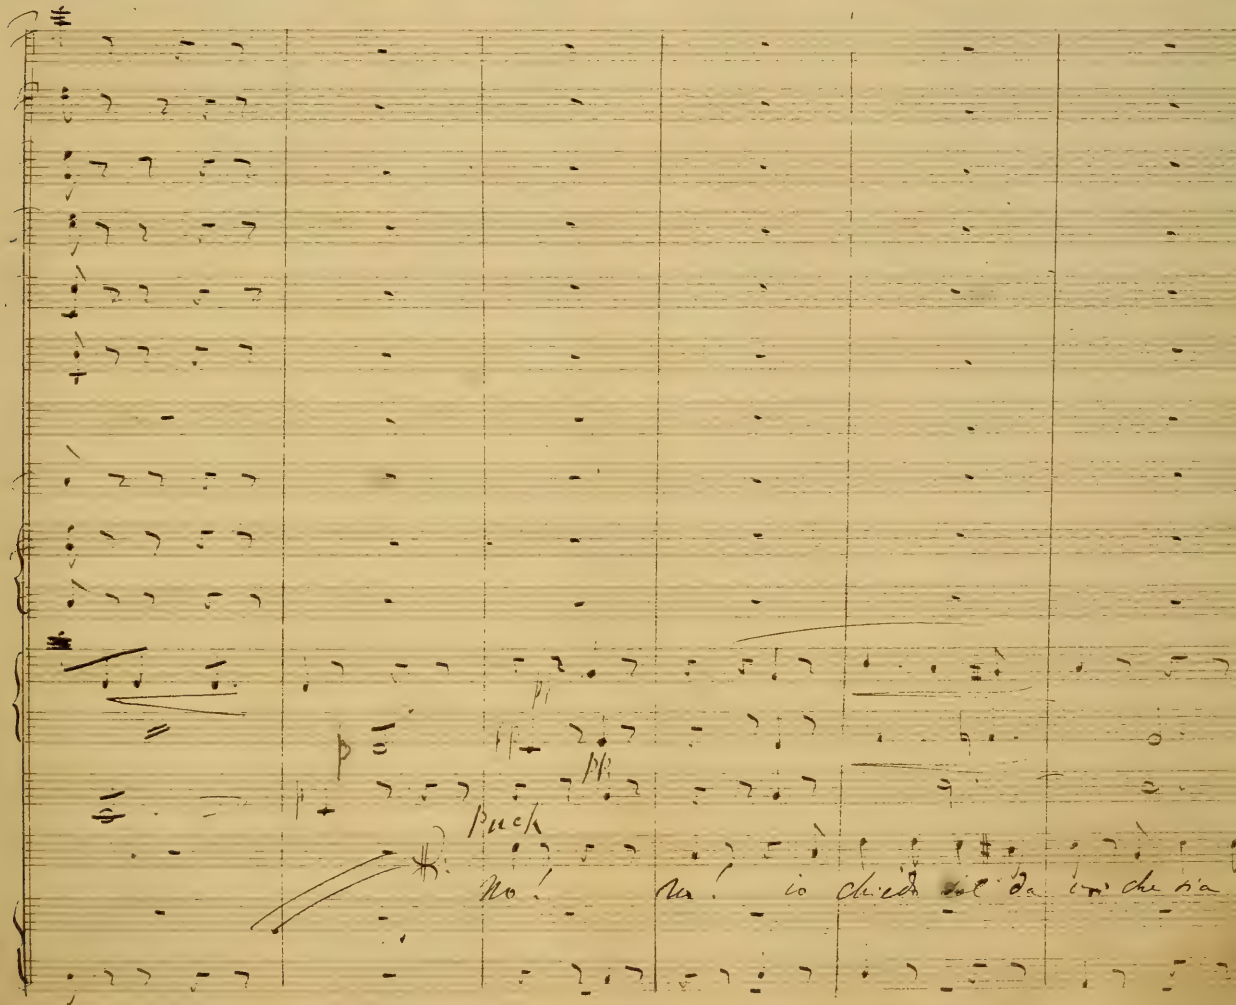 pp
p
pp
pp
Puck
No! No! io chiedo sol da voi che sia